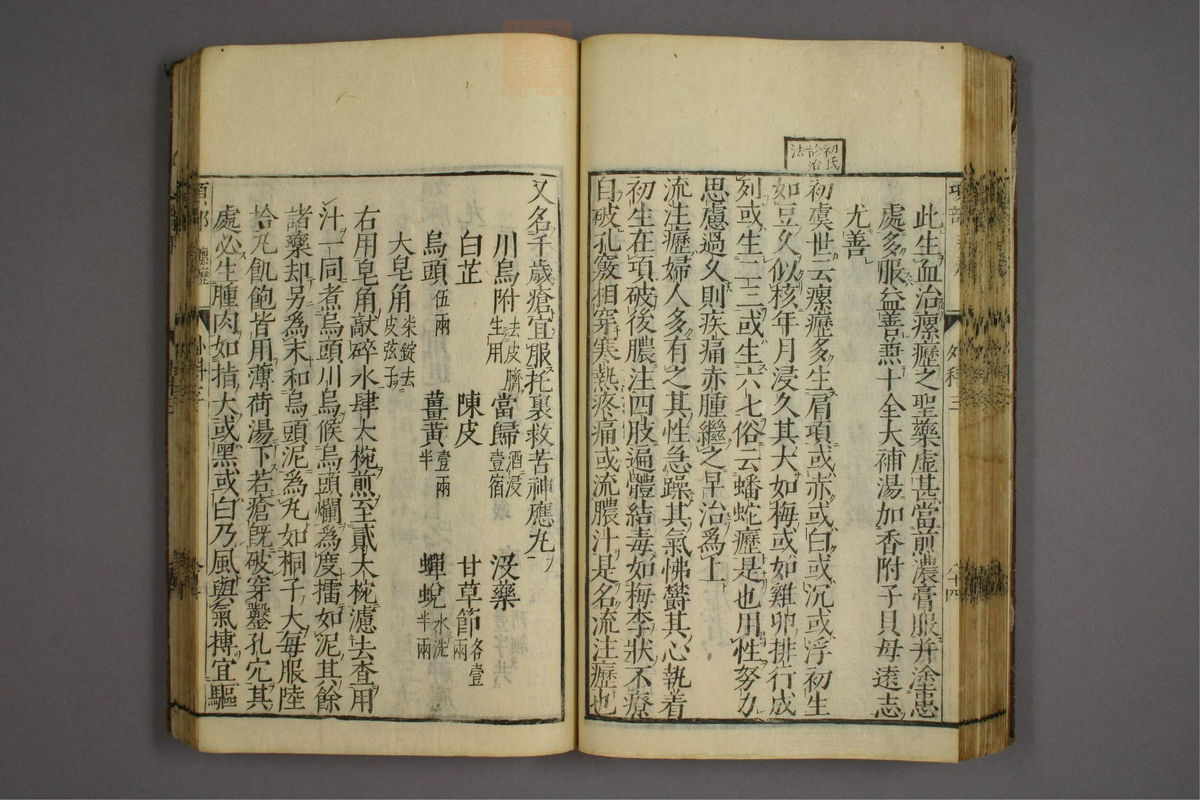 初氏
診治
法
此生血治瘰癧之聖藥虛甚當煎濃膏服并塗患
處多服益善兼十全大補湯加香附子貝母遠志
尤善
初虞世云瘰癧多生肩項或赤或白或沉或浮初生
如豆久似核年月浸久其大如梅或如雞卵排行成
列或生二三或生六七俗云蟠蛇癧是也用性努力
思慮過久則疾痛赤腫繼之早治爲上
流注癧婦人多有之其性急躁其氣怫欝其心執着
初生在項破後膿注四肢遍體結毒如梅李狀不療
自破孔竅相穿寒熱疼痛或流膿汁是名流注癧也
又名千歲瘡宜服托裏救苦神應丸
川烏附去皮臍生用 當歸酒浸壹宿 沒藥
白芷 陳皮 甘草節各壹兩
烏頭伍兩 薑黃壹兩半 蟬蛻水洗半兩
大皂角柒錠去皮弦子
右用皂角敲碎水肆大椀煎至貳大椀濾去查用
汁一同煮烏頭川烏候烏頭爛爲度擂如泥其餘
諸藥却另爲末和烏頭泥爲丸如桐子大每服陸
拾丸飢飽皆用薄荷湯下若瘡旣破穿鑿孔穴其
處必生腫肉如指大或黑或白乃風與氣搏宜驅
項部 瘰癧
外科三